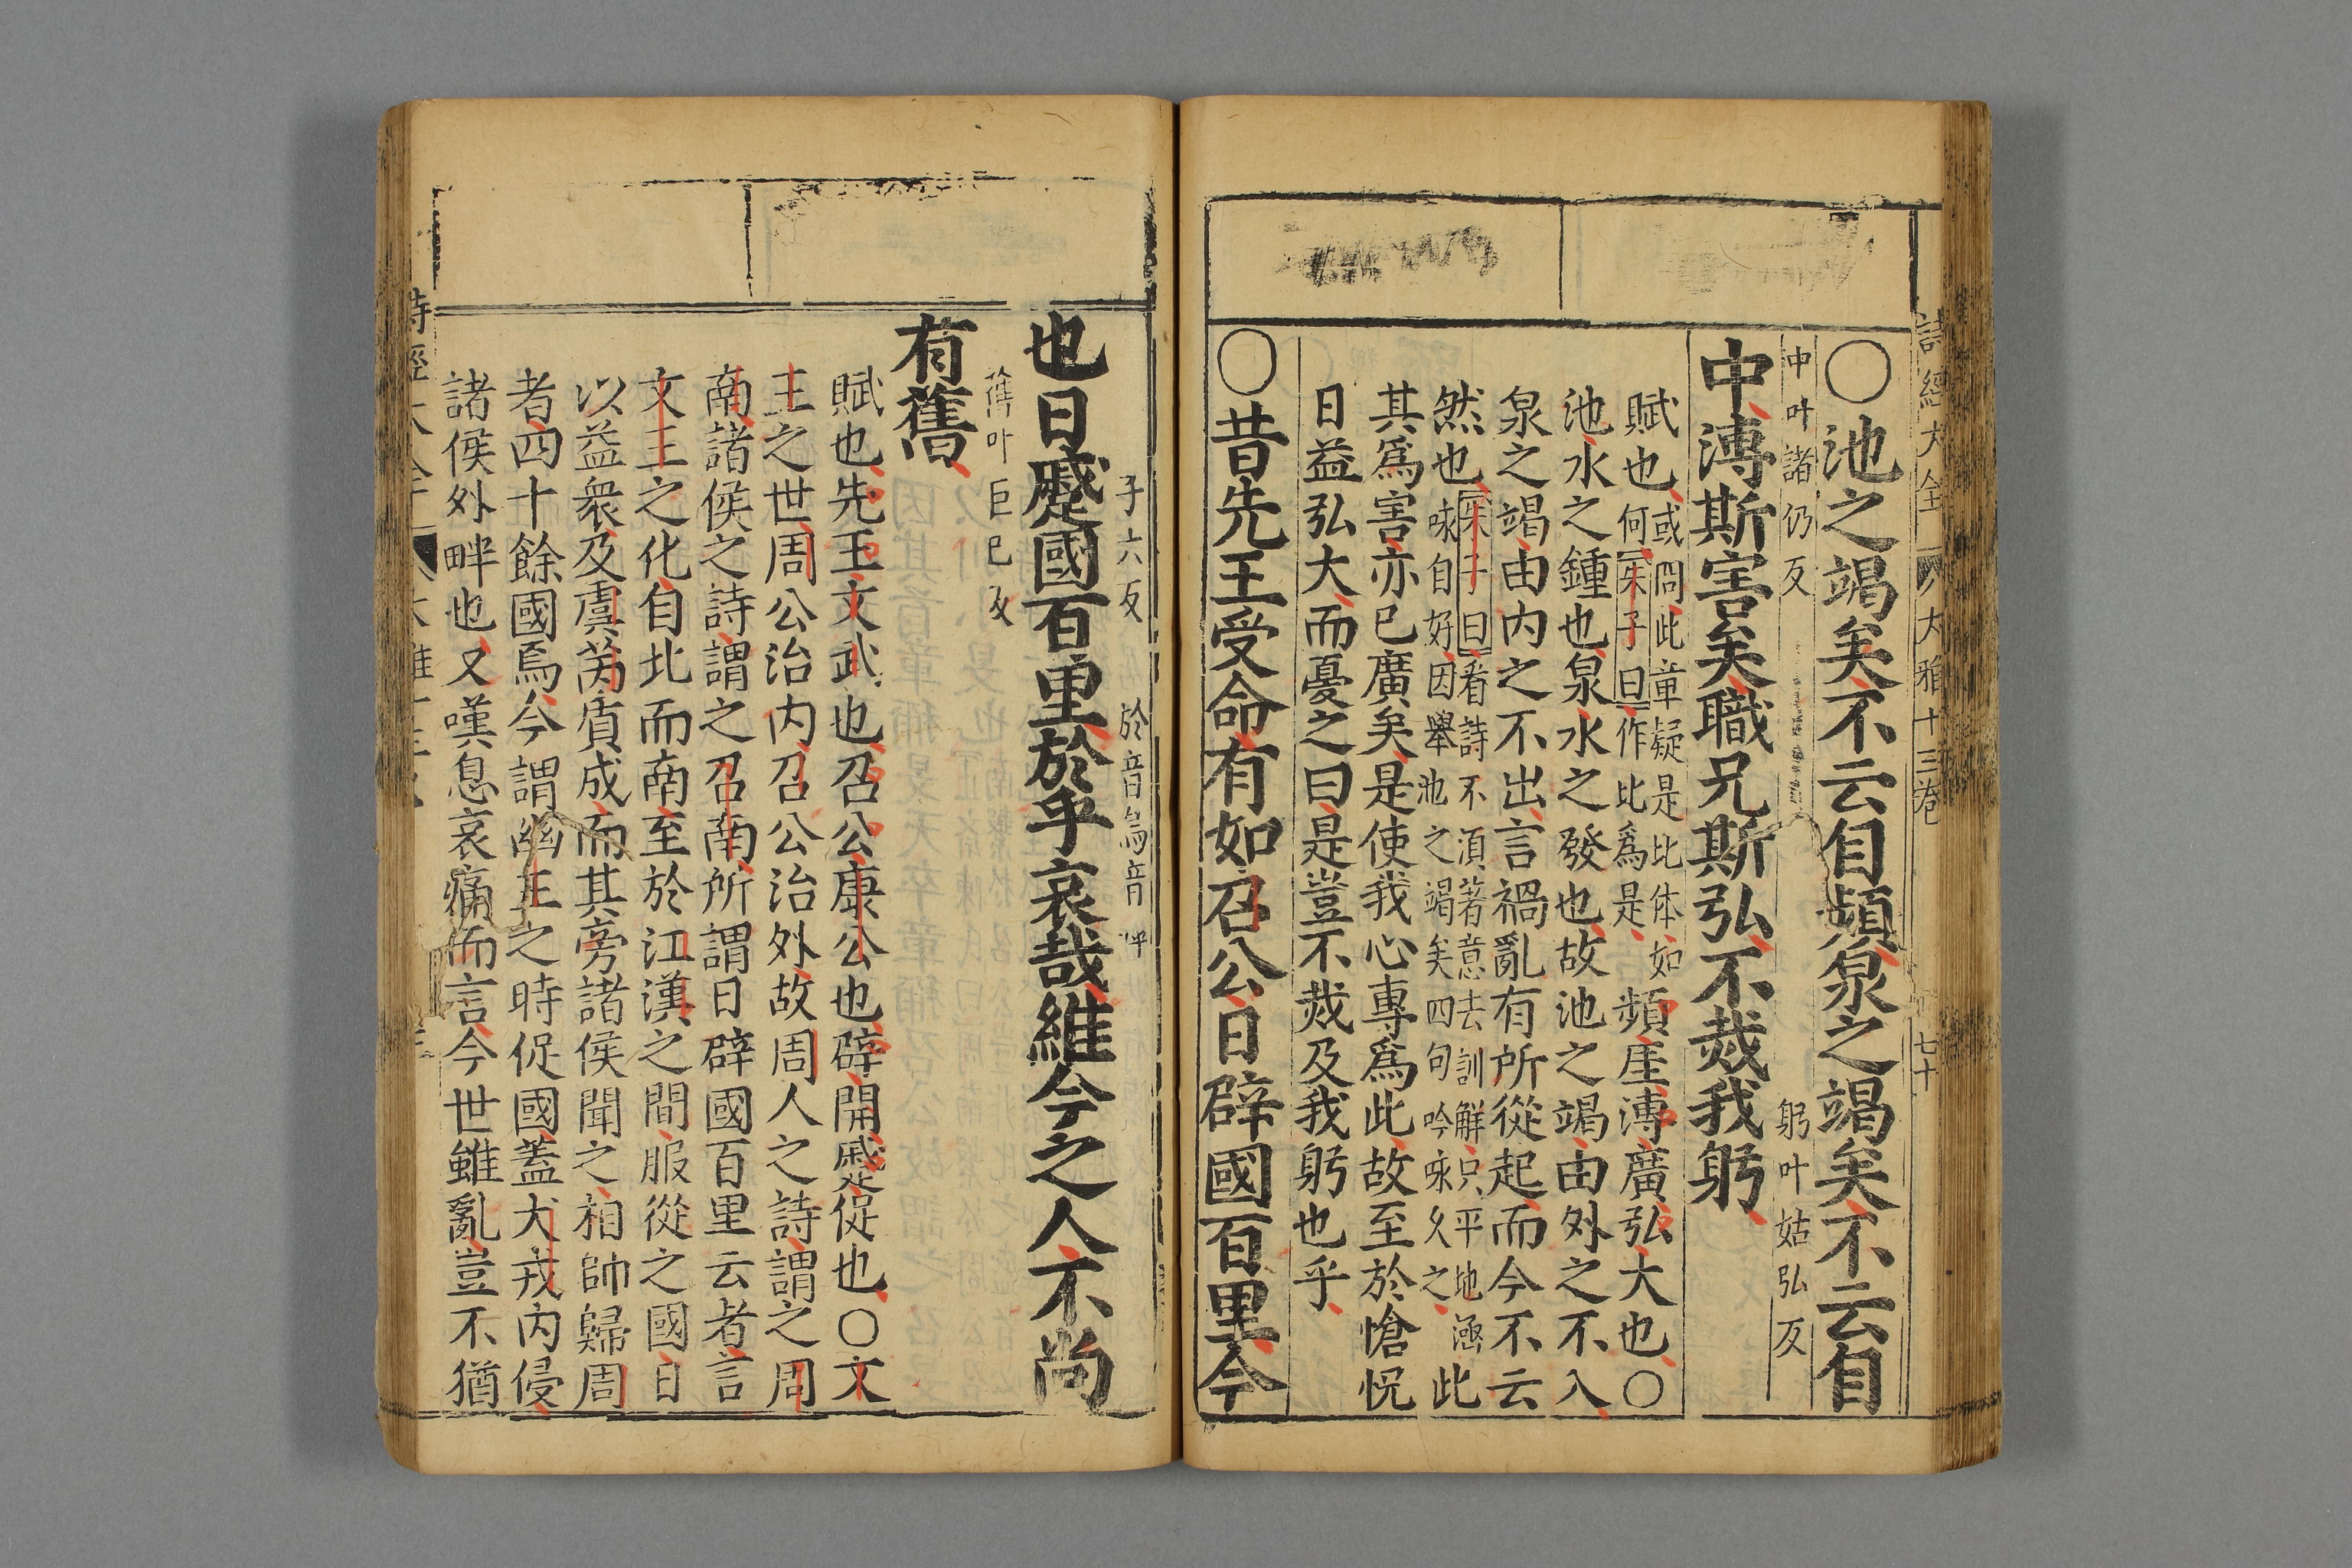 詩經大全 大雅十三卷 七十
〇池之竭矣不云自頻泉之竭矣不云自
中叶諸仍反 躬叶姑弘反
中溥斯害矣職兄斯弘不烖我躬
賦也或問此章疑是比体如何朱子曰作比爲是頻厓溥廣弘大也〇
池水之鍾也泉水之發也故池之竭由外之不入
泉之竭由内之不出言禍亂有所從起而今不云
然也朱子曰看詩不須著意去訓解只平地涵咏自好因舉池之竭矣四句吟咏久之此
其爲害亦已廣矣是使我心專爲此故至於愴怳
日益弘大而憂之曰是豈不烖及我躬也乎
〇昔先王受命有如召公日辟國百里今
子六反 於音烏音呼
也日蹙國百里於乎哀哉維今之人不尚
舊叶巨已反
有舊
賦也先王文武也召公康公也辟開蹙促也〇文
王之世周公治内召公治外故周人之詩謂之周
南諸侯之詩謂之召南所謂日辟國百里云者言
文王之化自北而南至於江漢之間服從之國日
以益衆及虞芮質成而其旁諸侯聞之相帥歸周
者四十餘國焉今謂幽王之時促國蓋犬戎内侵
諸侯外畔也又嘆息哀痛而言今世雖亂豈不猶